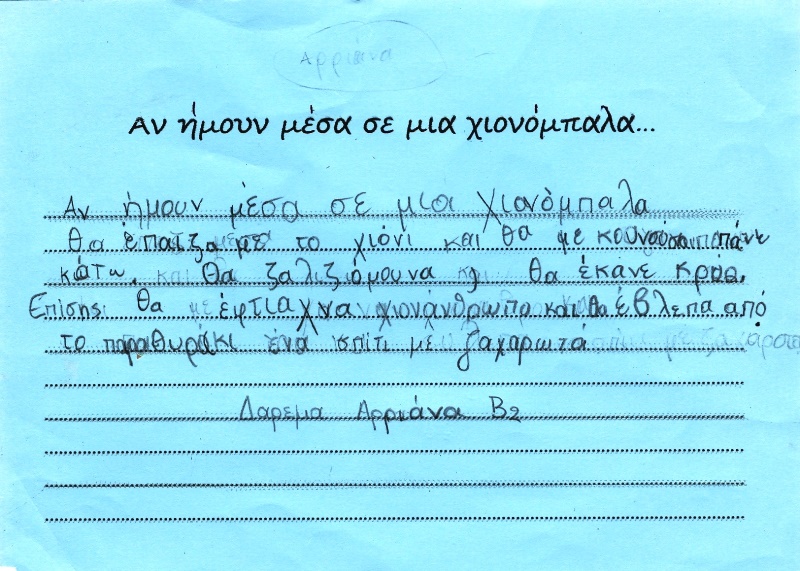 Αρριάνα
Αν ήμουν μέσα σε μια χιονόμπαλα...
Αν ήμουν μέσα σε μια χιανόμπαλα
θα έπαιζα με το χιόνι και θα με κουνούσαν πάνω
κάτω. Θα ζαλιζόμουνα θα έκανε κρύο.
Επίσης θα έφτιαχνα χιονάνθρωπο και θα έβλεπα από
το παραθυράκι ένα σπίτι με ζαχαρωτά
Δαρεμα Αρριάνα Β2